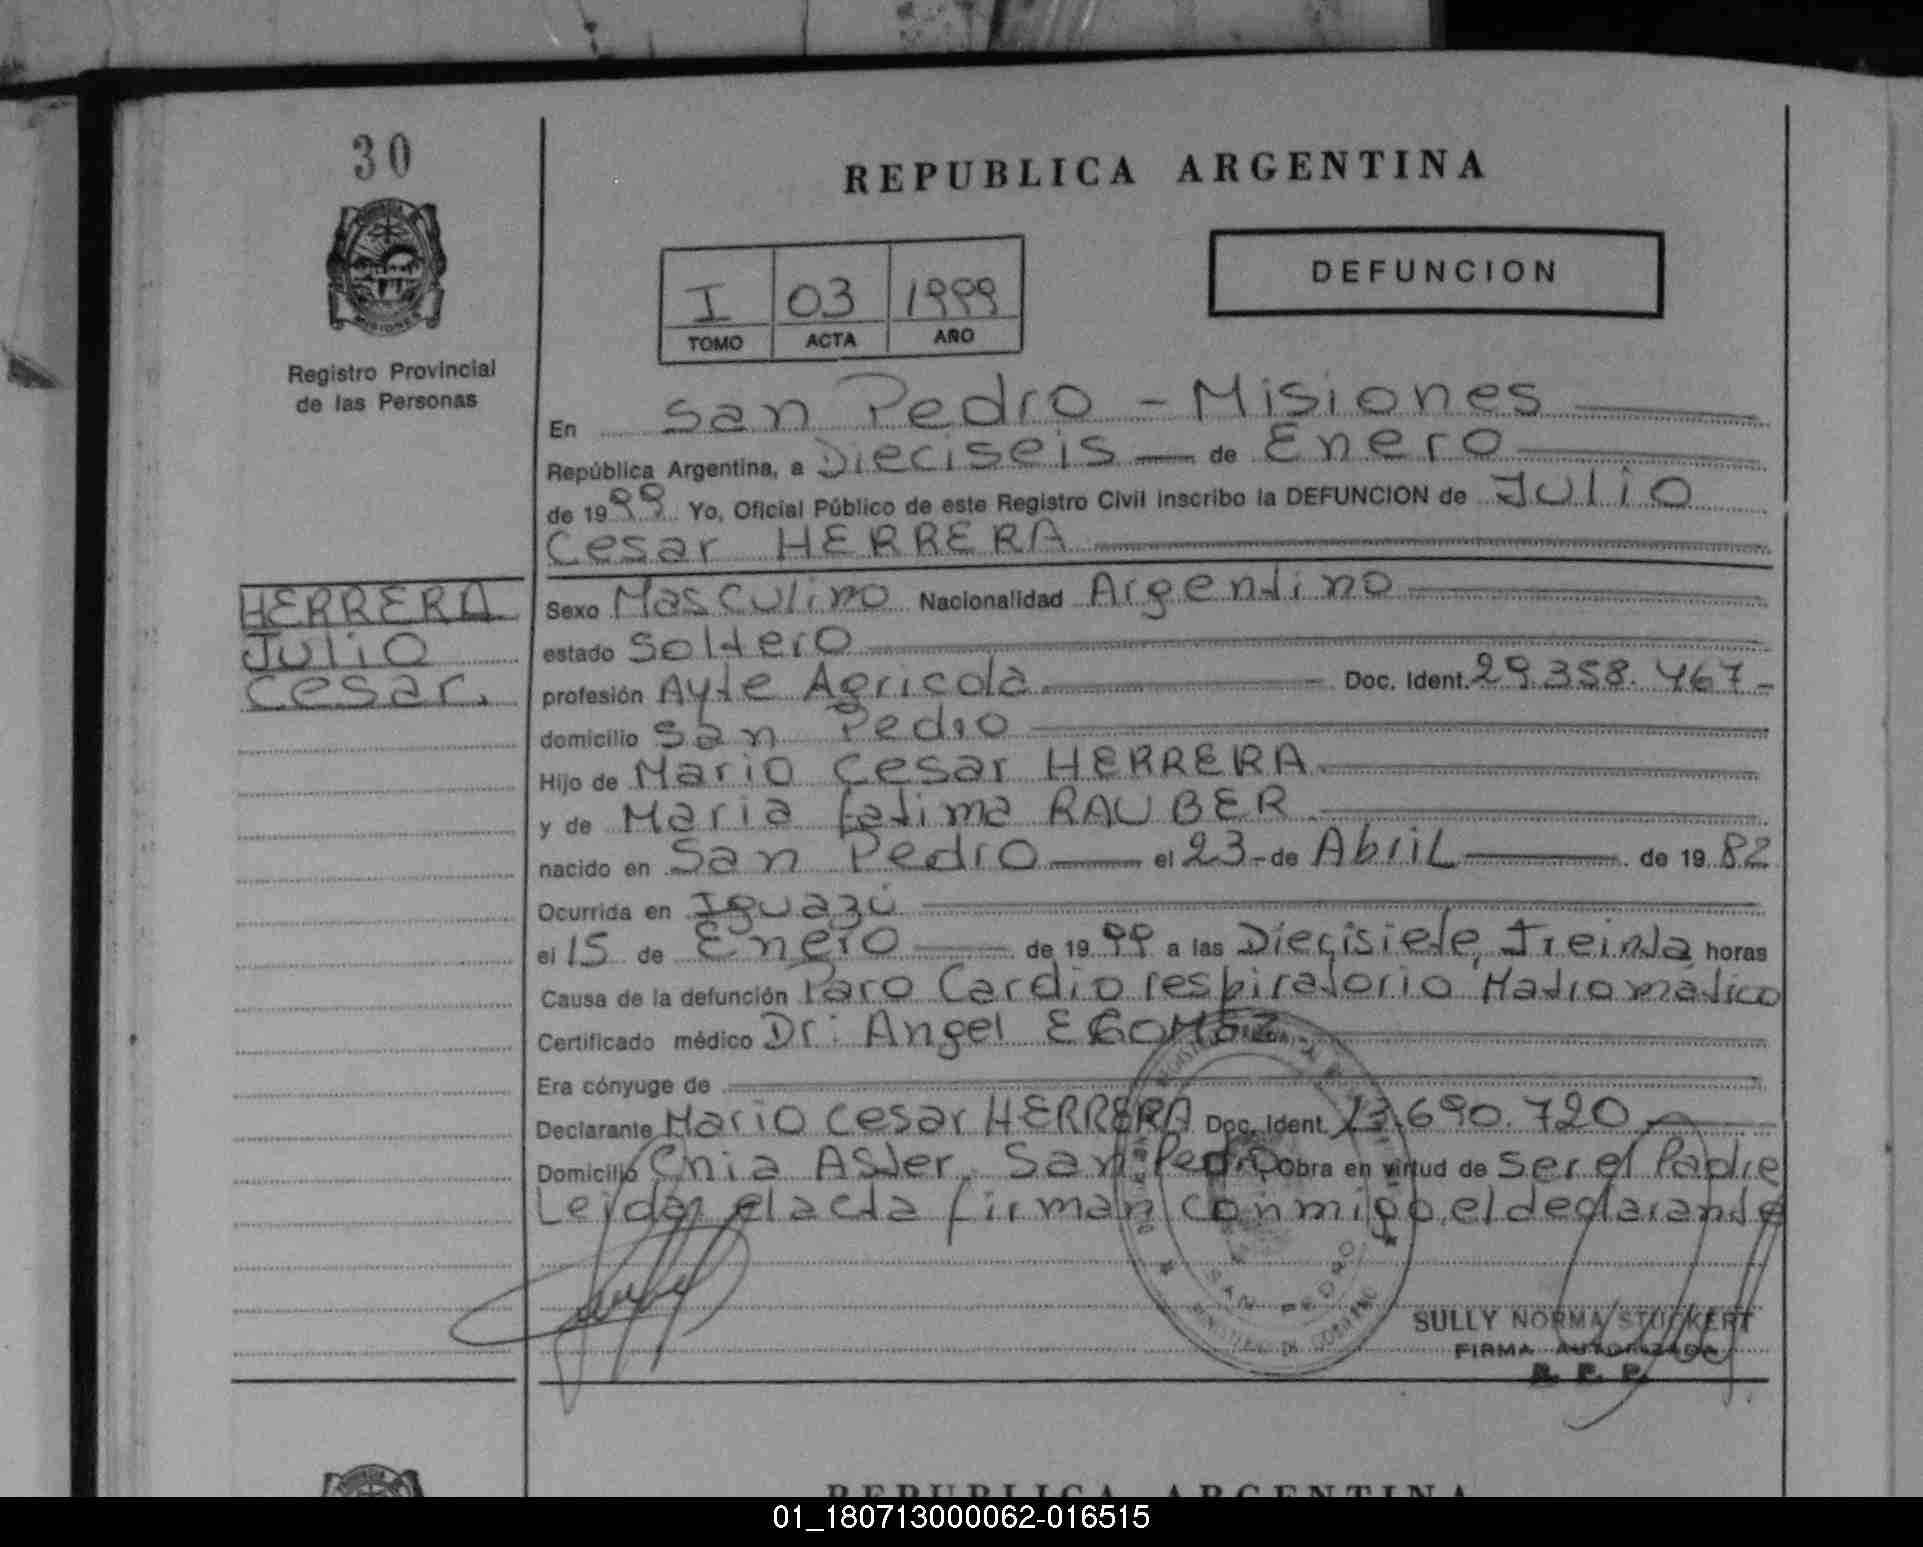 30
REPUBLICA ARGENTINA
DEFUNCION
I 03 1999
TOMO ACTA AÑO
MISIONES
Registro Provincial
de las Personas
En San Pedro - Misiones
República Argentina, a Dieciseis de Enero
de 1999 Yo, Oficial Público de este Registro Civil inscribo la DEFUNCION de Julio
Cesar HERRERA
HERRERA
Julio
Cesar.
Sexo Masculino Nacionalidad Argentino
estado Soltero
profesión Ayte Agricola Doc. Ident. 29.358.467-
domicilio San Pedro
Hijo de Mario Cesar HERRERA
y de Maria fatima RAUBER
nacido en San Pedro el 23 de Abril de 1982
Ocurrida en Iguazú
el 15 de Enero de 1999 a las Diecisiete, Treinta horas
Causa de la defunción Paro Cardio respiratorio
Certificado médico Dr: Angel
Era cónyuge de
Declarante Mario Cesar HERRERA Doc. Ident. 13.690.720
Domicilio Cnia Aster, San Pedro Obra en virtud de ser el Padre
Leida el acta firman conmigo, el declarante
SAN PEDRO
MINISTERIO DE GOBIERNO
SULLY NORMA STUCKERT
FIRMA AUTORIZADA
R. P. P.
REPUBLICA ARGENTINA
01_180713000062-016515